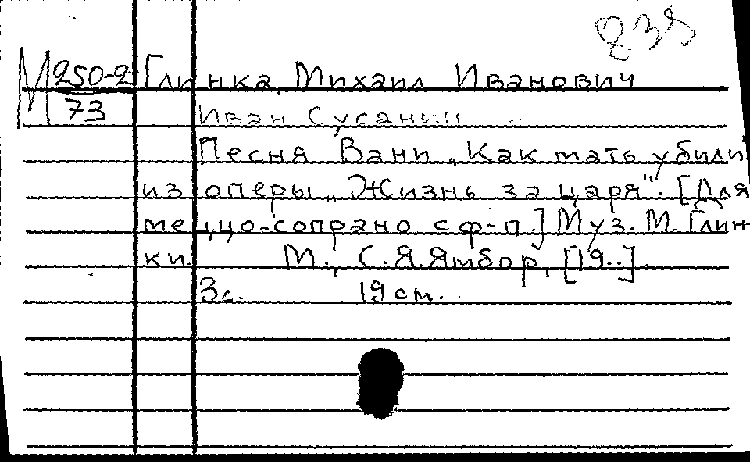 235
М 250-2 Глинка, Михаил Иванович
73
Иван Сусанин
Песня Вани „Как мать убили
из оперы „Жизнь за царя". [Для
меццо-сопрано с ф-п] Муз. М. Глин-
ки. М., С.Я. Ямбор, [19..]
3 с. 19 см.